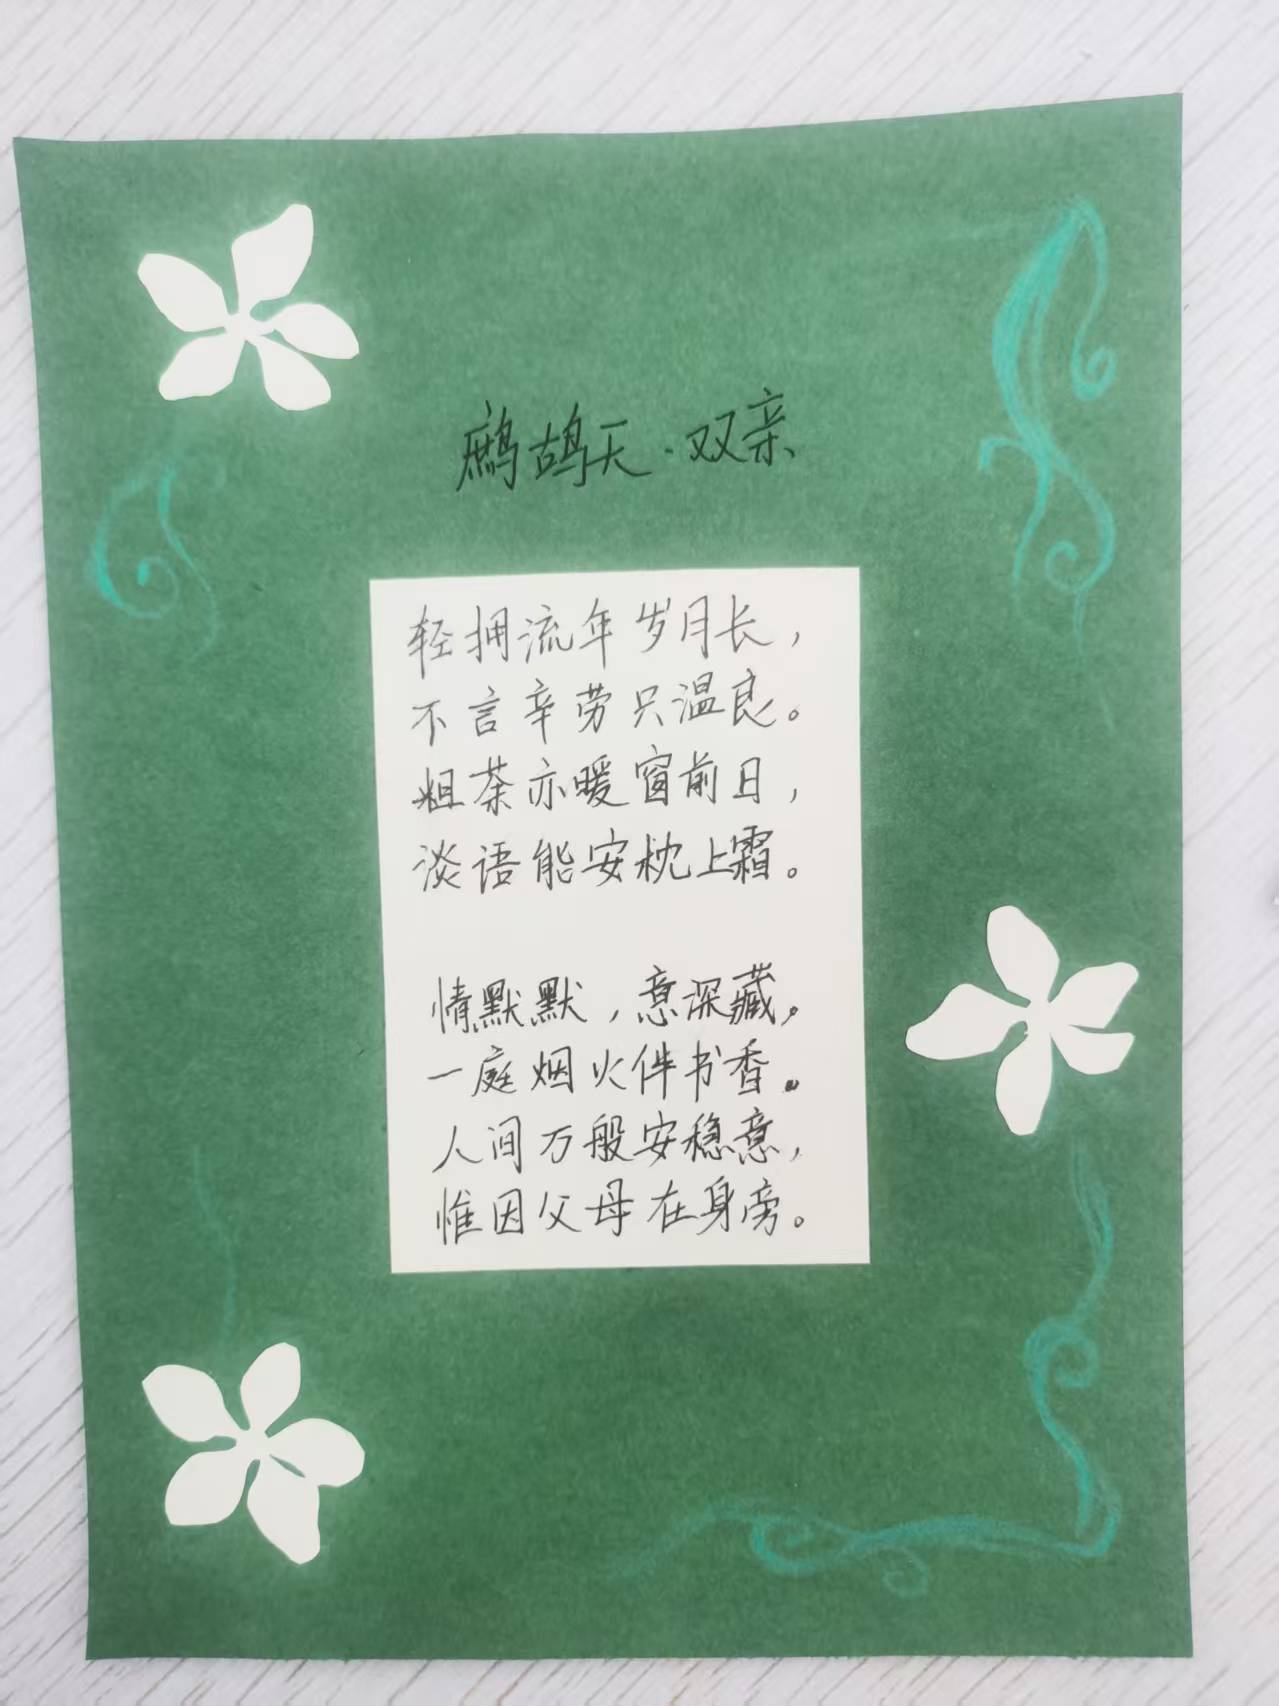 鹧鸪天·双亲
轻拥流年岁月长，
不言辛劳只温良。
粗茶亦暖窗前日，
淡语能安枕上霜。
情默默，意深藏，
一庭烟火伴书香。
人间万般安稳意，
惟因父母在身旁。